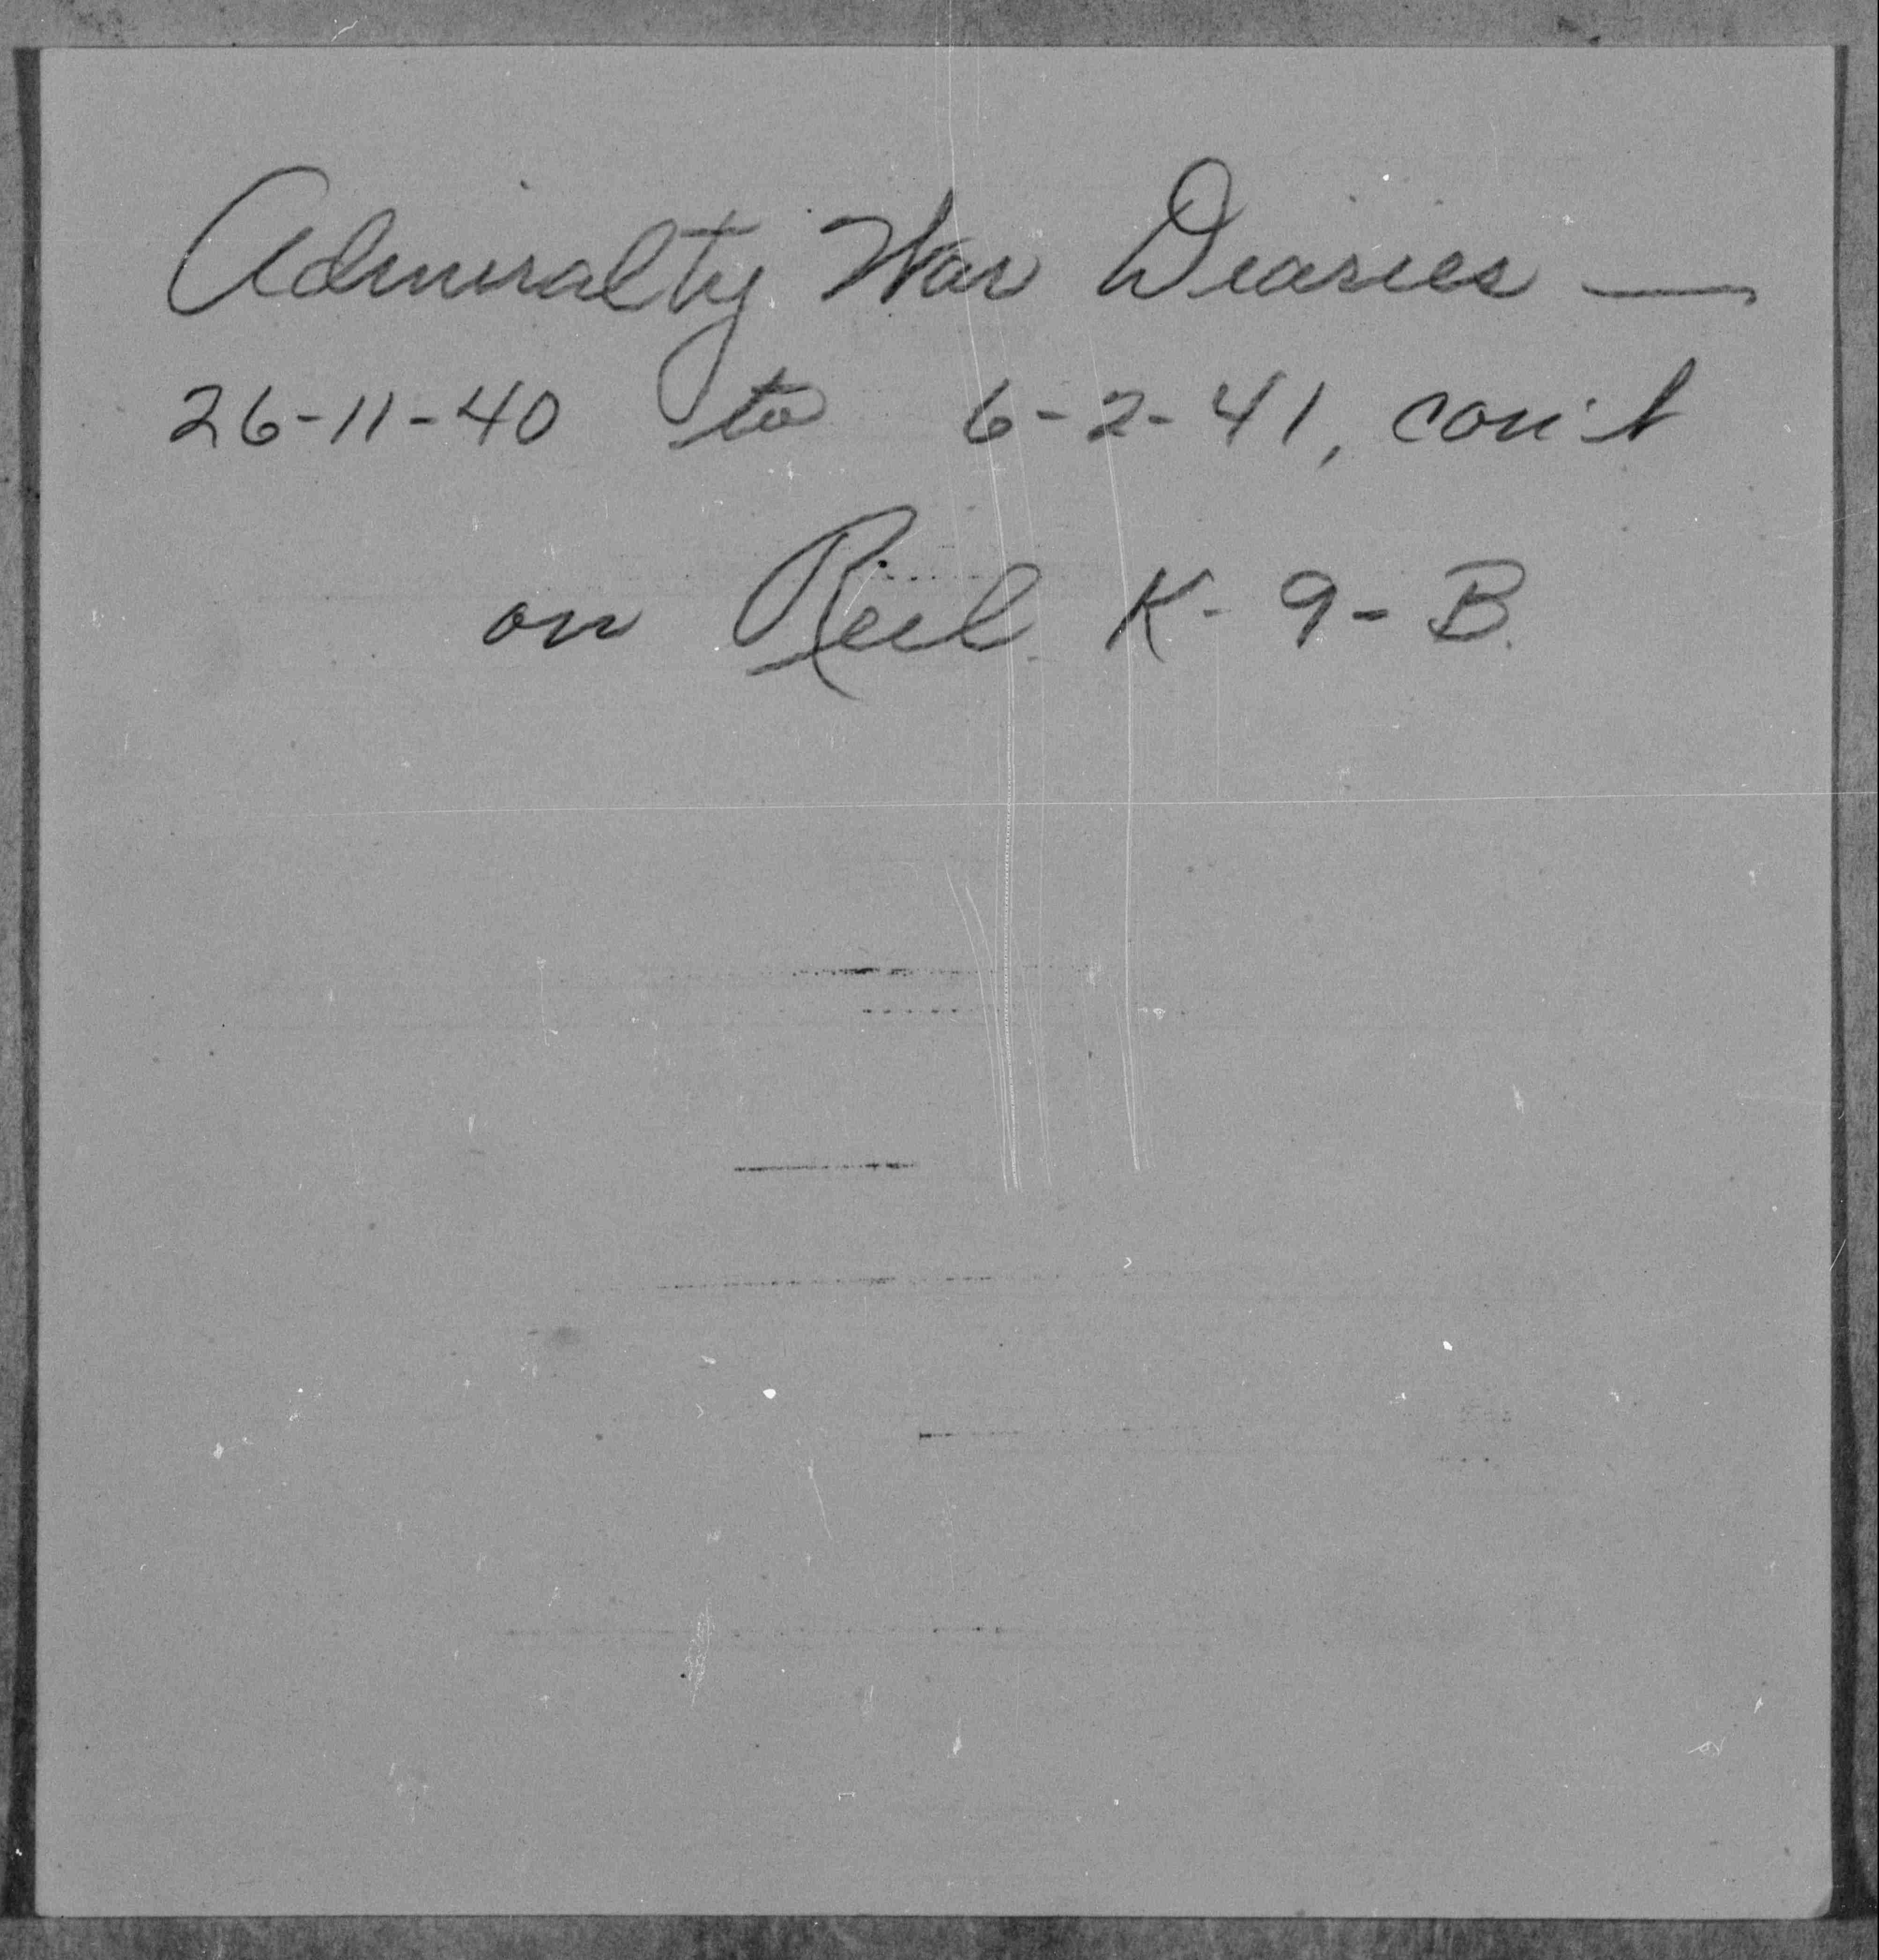 Admiralty War Diaries —
26-11-40 to 6-2-41, con't
on Reel K-9-B.